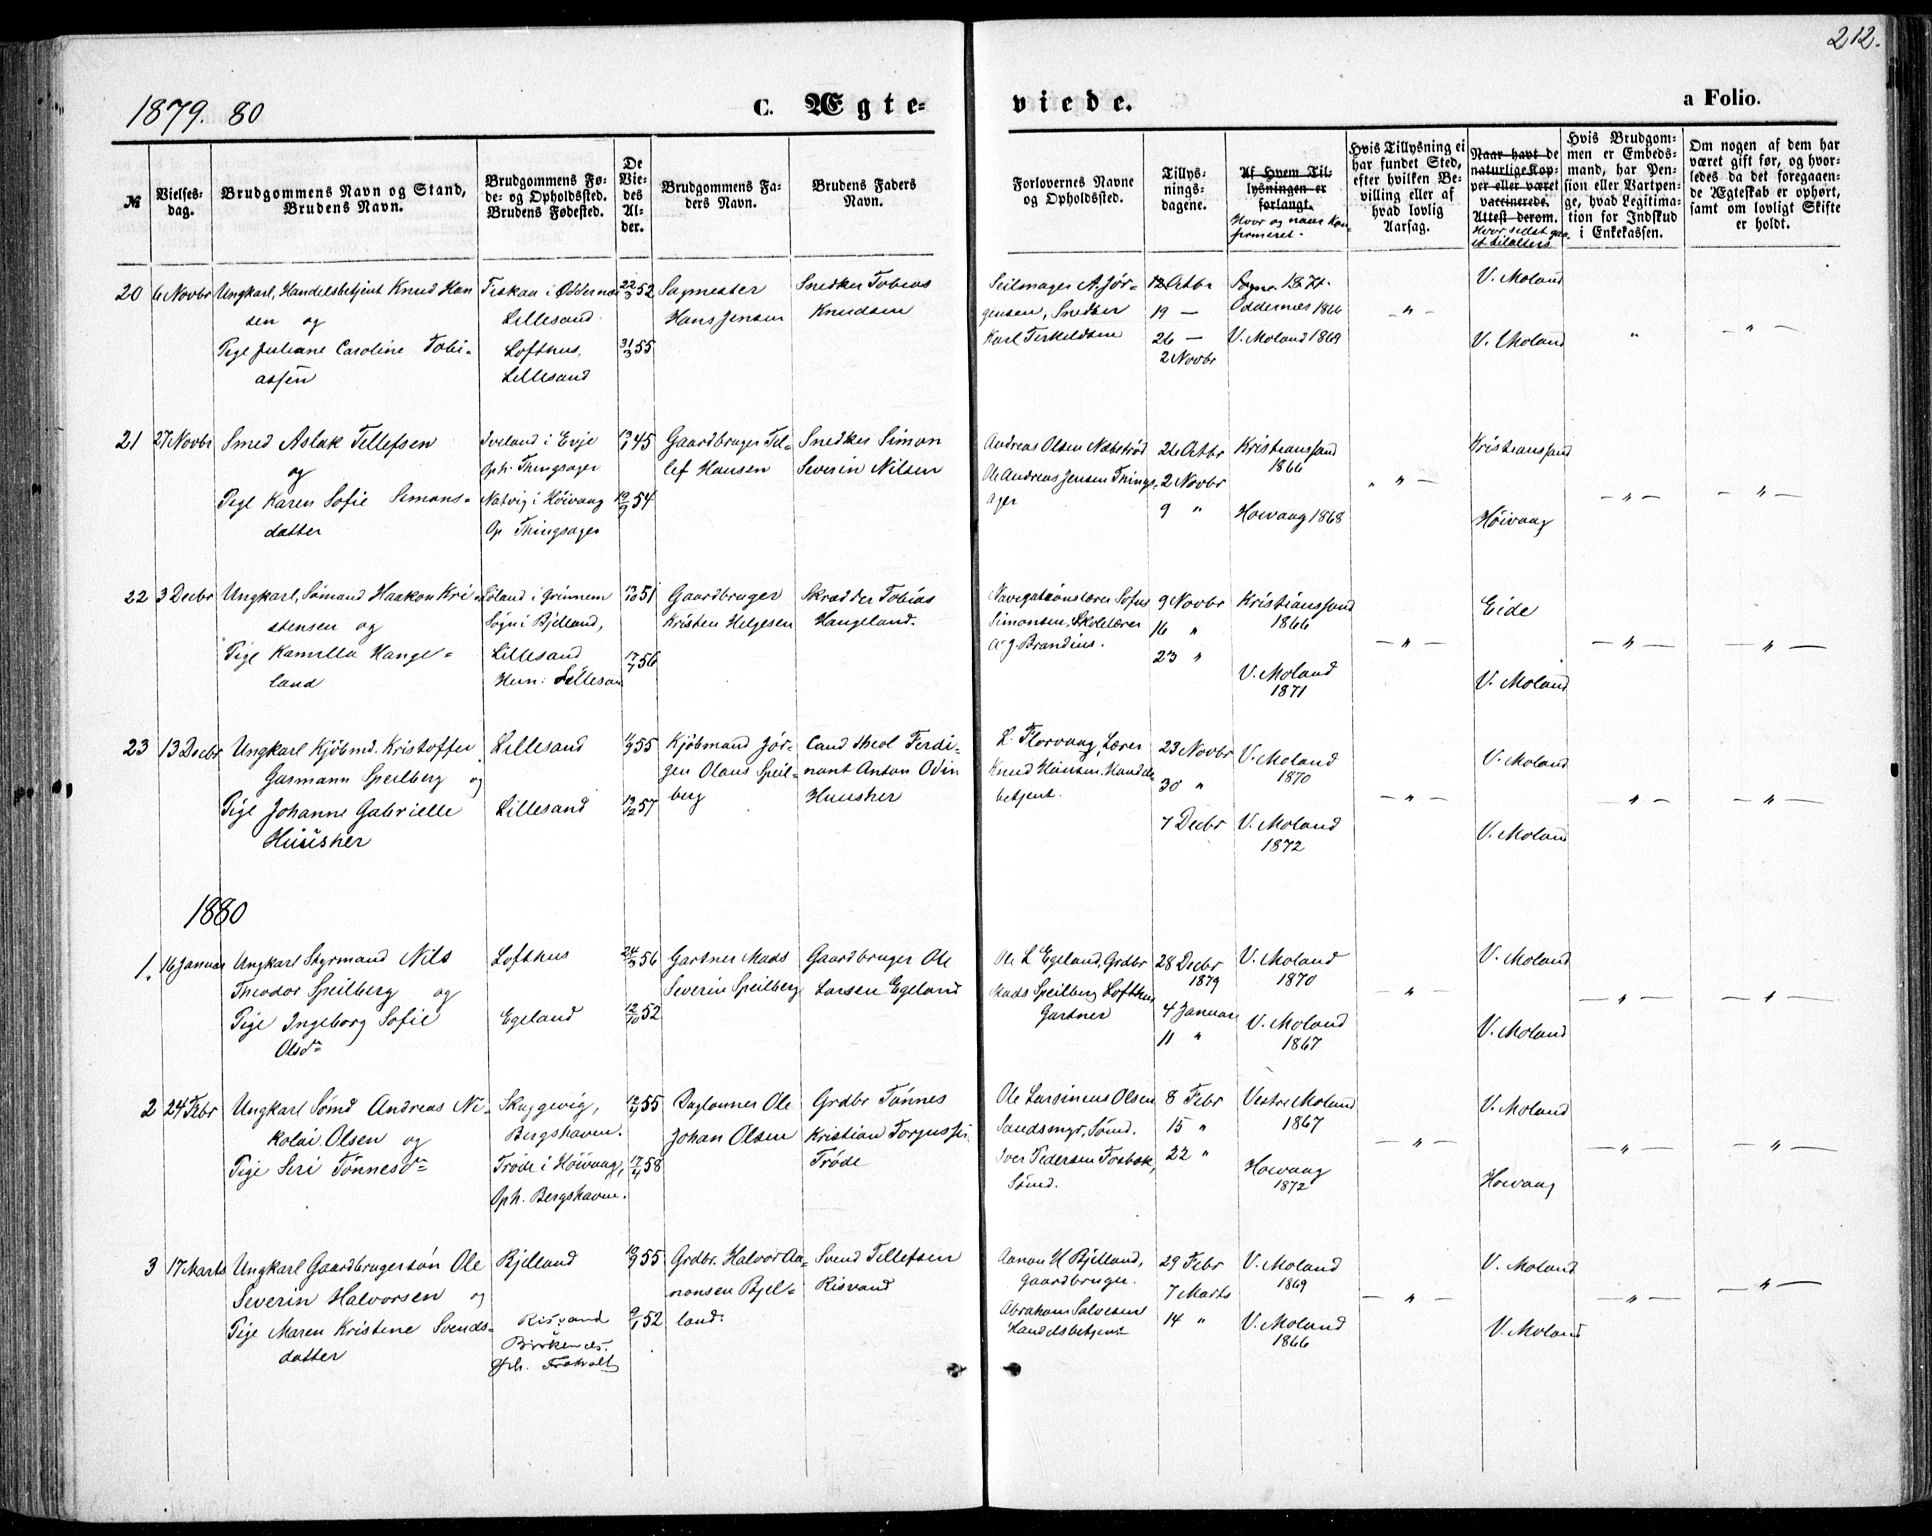 212.
1879. 80
C. Ægte-
viede.
a Folio.
№
Vielses-
dag.
Brudgommens Navn og Stand,
Brudens Navn.
Brudgommens Fø-
de- og Opholdssted.
Brudens Fødested.
De
Vie-
des
Al-
der.
Brudgommens Fa-
ders Navn.
Brudens Faders
Navn.
Forlovernes Navne
og Opholdssted.
Tillys-
nings-
dagene.
Af Hvem Til-
lysningen er
forlangt.
Hvor og naar kon-
firmeret.
Hvis Tillysning ei
har fundet Sted,
efter hvilken Be-
villing eller af
hvad lovlig
Aarsag.
Naar havt de
naturlige Kop-
per eller været
vaccinerede.
Attest derom.
Hvor sidst gaa-
et til alters
Hvis Brudgom-
men er Embeds-
mand, har Pen-
sion eller Vartpen-
ge, hvad Legitima-
tion for Indskud
i Enkekassen.
Om nogen af dem har
været gift før, og hvor-
ledes da det foregaaen-
de Ægteskab er ophørt,
samt om lovligt Skifte
er holdt.
20
6 Novbr
Ungkarl, Handelsbetjent Knud Han
sen og
Pige Juliane Caroline Tobi-
assen
Tiskaa i Oddernæs
Lillesand
Lofthus,
Lillesand
22/3 52
31/3 55
Sagmester
Hans Jensen
Snedker Tobias
Knudsen
Seilmager A. Jør-
gensen, Snedker
Karl Terkeldsen
12 Octbr
19 —
26 —
2 Novbr
Oddernes 1866
V. Moland 1869
— " —
V. Moland
V. Moland
"
— " —
21
27 Novbr
Smed Aslak Tellefsen
og
Pige Karen Sofie Simons-
datter
Iveland i Evje
Oph. Thingsager
Natvig i Høivaag
Op Thingsager
45
19/9 54
Gaardbruger Tel-
lef Hansen
Snedker Simon
Severin Nilsen
Andreas Olsen Næbstrød
Ole Andreas Jensen Things-
ager
26 Octbr
2 Novbr
9 "
Kristianssand
1866
Høivaag 1868
" — " —
Kristianssand
Høivaag
— " —
— " —
22
3 Decbr
Ungkarl, Sømand Haakon Kri-
stensen og
Pige Kamilla Hange-
land
Løland i Grinnem
Sogn i Bjelland,
Lillesand
Hun: Lillesan
51
17/7 56
Gaardbruger
Kristen Helgesen
Skrædder Tobias
Hangeland.
Navigationslærer Sofus
Simonsen, Skolelærer
A. J. Brandius.
9 Novbr
16 "
23 "
Kristianssand
1866
V. Moland
1871
— " —
Eide
V. Moland
— " —
— " —
23
13 Decbr
Ungkarl Kjøbmd. Kristoffer
Gasmann Speilberg og
Pige Johanne Gabrielle
Huusher
Lillesand
Lillesand
1/9 55
19/12 57
Kjøbmand Jør-
gen Olaus Speil-
berg
Cand theol Ferdi-
nant Anton Odin
Huusher
L. Florvaag, Lærer
Knud Hansen. Handels
betjent.
23 Novbr
30 "
7 Decbr
V. Moland
1870
V. Moland
1872
— " —
V. Moland
V. Moland
— " —
— " —
1880
1.
16 Januar
Ungkarl Styrmand Nils
Theodor Speilberg og
Pige Ingeborg Sofie
Olsdr
Lofthus
Egeland
24/3 56
12/10 52
Gartner Mads
Severin Speilberg
Gaardbruger Ole
Larsen Egeland
Ole L Egeland, Grdbr
Mads Speilberg Lofthus
Gartner
28 Decbr
1879
4 Januar
11 "
V. Moland
1870
V. Moland
1867
— " —
V. Moland
V. Moland
— " —
— " —
2
24 Febr
Ungkarl Sømd Andreas Ni-
kolai Olsen og
Pige Seri Tønnesdr
Skaggevig,
Bergshaven.
Trøde i Høivaag,
Oph. Bergshavn.
55
17/4 58
Daglønner Ole
Johan Olsen
Grdbr Tønnes
Kristian Torgussen
Trøde
Ole Larsinius Olsen
Sandsmyr, Sømd.
Iver Pedersen Fosbæk,
Sømd.
8 Febr
15 "
22 "
Vestre Moland
1867
Høivaag
1872
— " —
V. Moland
Høivaag
— " —
— " —
3
17 Marts
Ungkarl Gaardbrugersøn Ole
Severin Halvorsen og
Pige Maren Kristine Svends-
datter
Bjelland
Risvand
Birkenæs.
Oph. Trøkvolt
55
9/1 52
Grdbr. Halvor Aa-
nonsen Bjel-
land.
Svend Tellefsen
Risvand
Aanon H Bjelland,
Gaardbruger.
Abraham Salvesen
Handelsbetjent
29 Febr
7 Marts
14 "
V. Moland
1869
V. Moland
1866
— " —
V. Moland
V. Moland
— " —
— " —